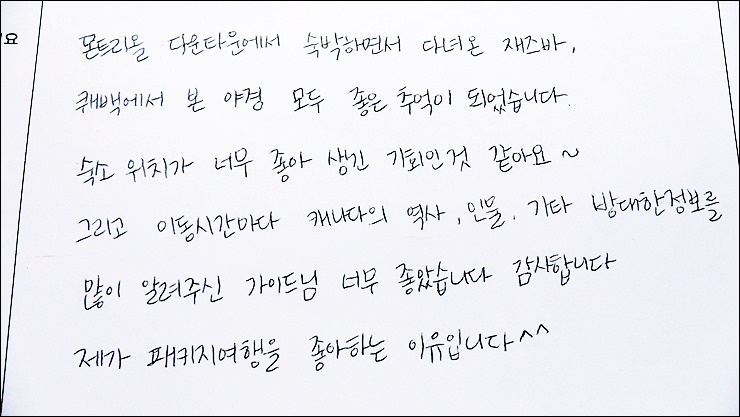 몬트리올 다운타운에서 숙박하면서 다녀온 재즈바,
퀘백에서 본 야경 모두 좋은 추억이 되었습니다.
숙소 위치가 너무 좋아 생긴 기회인것 같아요~
그리고 이동시간마다 캐나다의 역사, 인물, 기타 방대한정보를
많이 알려주신 가이드님 너무 좋았습니다 감사합니다
제가 패키지여행을 좋아하는 이유입니다^^